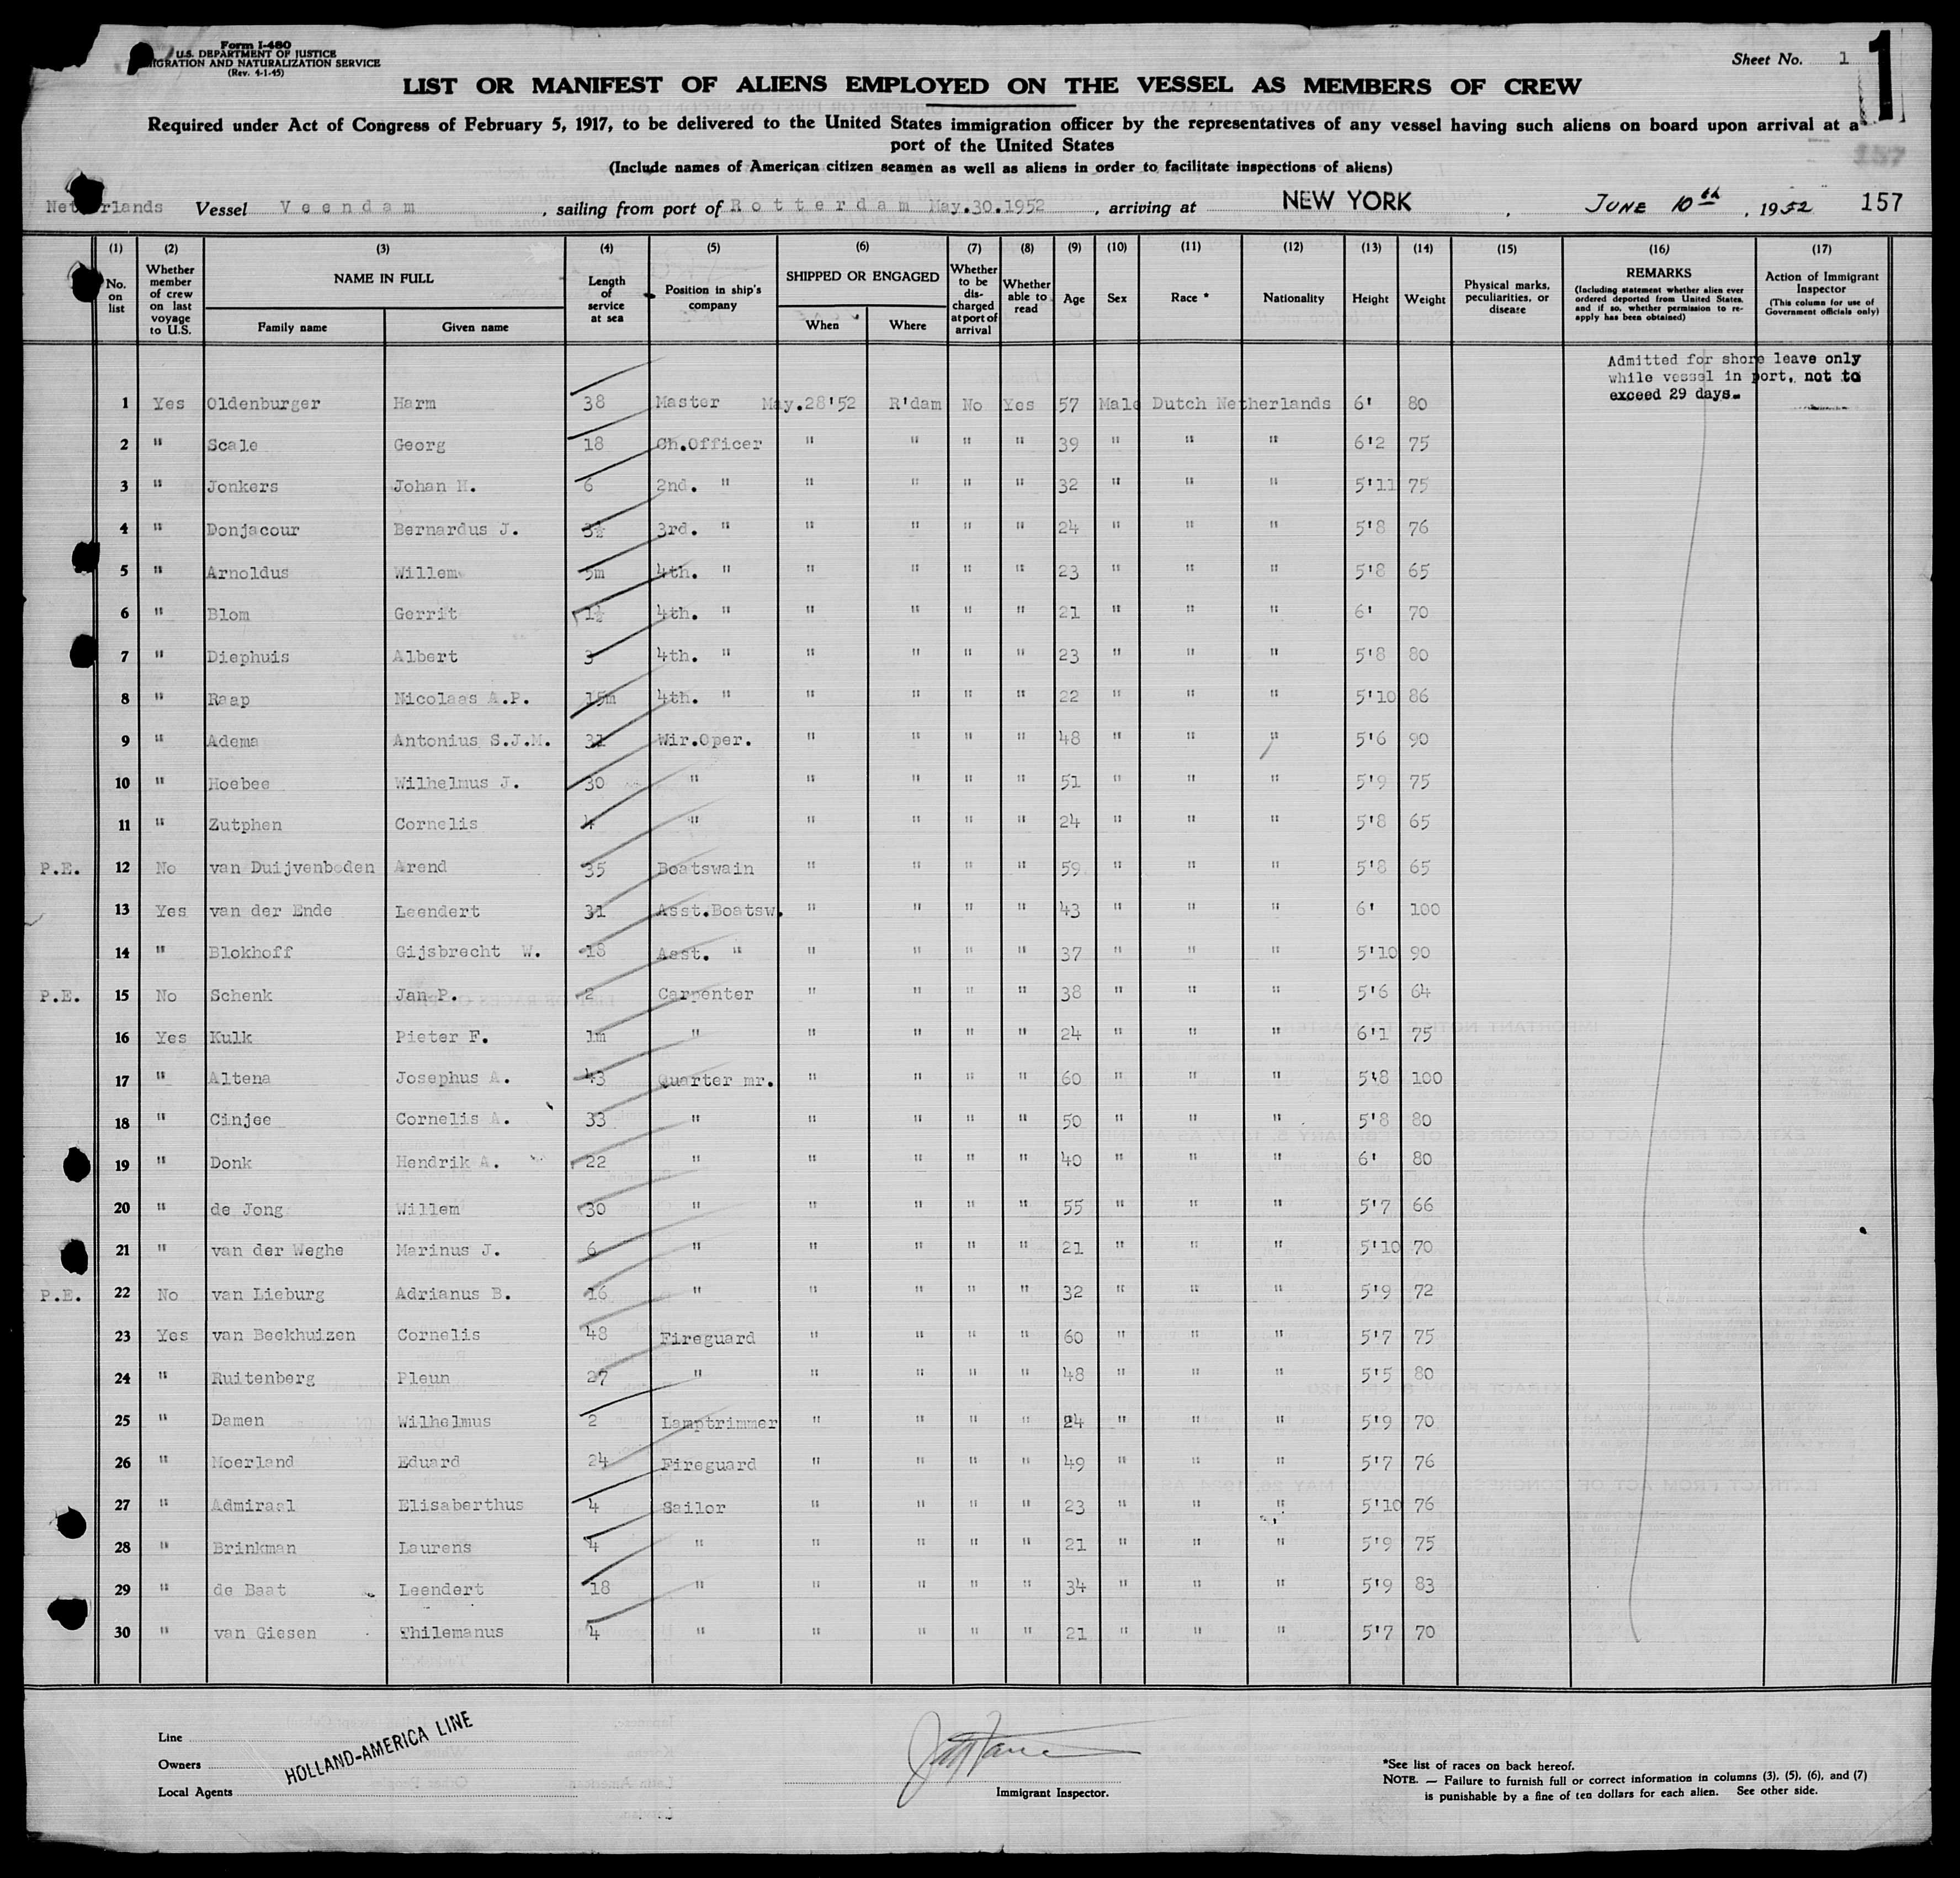 Form I-480
U.S. DEPARTMENT OF JUSTICE
IGRATION AND NATURALIZATION SERVICE
(Rev. 4-1-45)
Sheet No. 1
1
LIST OR MANIFEST OF ALIENS EMPLOYED ON THE VESSEL AS MEMBERS OF CREW
Required under Act of Congress of February 5, 1917, to be delivered to the United States immigration officer by the representatives of any vessel having such aliens on board upon arrival at a
port of the United States
(Include names of American citizen seamen as well as aliens in order to facilitate inspections of aliens)
157
Netherlands Vessel Veendam, sailing from port of Rotterdam May.30.1952, arriving at NEW YORK, JUNE 10th, 1952 157
(1) (2) (3) (4) (5) (6) (7) (8) (9) (10) (11) (12) (13) (14) (15) (16) (17)
No. on list
Whether member of crew on last voyage to U.S.
NAME IN FULL
Family name Given name
Length of service at sea
Position in ship's company
SHIPPED OR ENGAGED
When Where
Whether to be discharged at port of arrival
Whether able to read
Age
Sex
Race *
Nationality
Height
Weight
Physical marks, peculiarities, or disease
REMARKS
(Including statement whether alien ever ordered deported from United States, and if so, whether permission to re-apply has been obtained)
Action of Immigrant Inspector
(This column for use of Government officials only)
Admitted for shore leave only
while vessel in port, not to
exceed 29 days.
1 Yes Oldenburger Harm 38 Master May.28'52 R'dam No Yes 57 Male Dutch Netherlands 6' 80
2 " Scale Georg 18 Ch.Officer " " " " 39 " " " 6'2 75
3 " Jonkers Johan H. 6 2nd. " " " " " 32 " " " 5'11 75
4 " Donjacour Bernardus J. 3½ 3rd. " " " " " 24 " " " 5'8 76
5 " Arnoldus Willem 5m 4th. " " " " " 23 " " " 5'8 65
6 " Blom Gerrit 1½ 4th. " " " " " 21 " " " 6' 70
7 " Diephuis Albert 3 4th. " " " " " 23 " " " 5'8 80
8 " Raap Nicolaas A.P. 15m 4th. " " " " " 22 " " " 5'10 86
9 " Adema Antonius S.J.M. 31 Wir.Oper. " " " " 48 " " " 5'6 90
10 " Hoebee Wilhelmus J. 30 " " " " " 51 " " " 5'9 75
11 " Zutphen Cornelis 4 " " " " " 24 " " " 5'8 65
P.E. 12 No van Duijvenboden Arend 35 Boatswain " " " " 59 " " " 5'8 65
13 Yes van der Ende Leendert 31 Asst.Boatsw. " " " " 43 " " " 6' 100
14 " Blokhoff Gijsbrecht W. 18 Asst. " " " " " 37 " " " 5'10 90
P.E. 15 No Schenk Jan P. 2 Carpenter " " " " 38 " " " 5'6 64
16 Yes Kulk Pieter F. 1m " " " " " 24 " " " 6'1 75
17 " Altena Josephus A. 43 Quarter mr. " " " " 60 " " " 5'8 100
18 " Cinjee Cornelis A. 33 " " " " " 50 " " " 5'8 80
19 " Donk Hendrik A. 22 " " " " " 40 " " " 6' 80
20 " de Jong Willem 30 " " " " " 55 " " " 5'7 66
21 " van der Weghe Marinus J. 6 " " " " " 21 " " " 5'10 70
P.E. 22 No van Lieburg Adrianus B. 16 " " " " " 32 " " " 5'9 72
23 Yes van Beekhuizen Cornelis 48 Fireguard " " " " 60 " " " 5'7 75
24 " Ruitenberg Pleun 27 " " " " " 48 " " " 5'5 80
25 " Damen Wilhelmus 2 Lamptrimmer " " " " 24 " " " 5'9 70
26 " Moerland Eduard 24 Fireguard " " " " 49 " " " 5'7 76
27 " Admiraal Elisaberthus 4 Sailor " " " " 23 " " " 5'10 76
28 " Brinkman Laurens 4 " " " " " 21 " " " 5'9 75
29 " de Baat Leendert 18 " " " " " 34 " " " 5'9 83
30 " van Giesen Thilemanus 4 " " " " " 21 " " " 5'7 70
Line
Owners
Local Agents
HOLLAND-AMERICA LINE
Immigrant Inspector.
*See list of races on back hereof.
NOTE. — Failure to furnish full or correct information in columns (3), (5), (6), and (7)
is punishable by a fine of ten dollars for each alien. See other side.